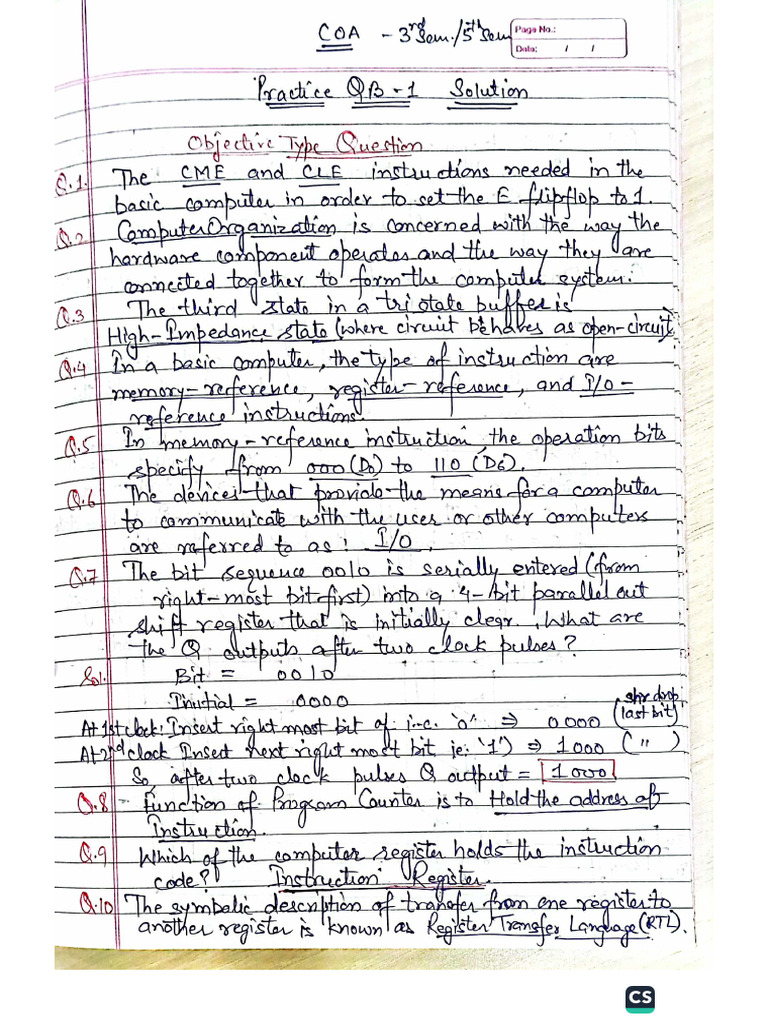 COA - 3rd Sem./5th Sem
Page No.:
Date: / /
Practice QB-1 Solution
Objective Type Question
Q.1. The CME and CLE instructions needed in the
basic computer in order to set the E flipflop to 1.
Q.2 Computer Organization is concerned with the way the
hardware component operates and the way they are
connected together to form the computer system.
Q.3 The third state in a tristate buffer is
High-Impedance state (where circuit behaves as open-circuit)
Q.4 In a basic computer, the type of instruction are
memory-reference, register-reference, and I/O-
reference instructions.
Q.5 In memory-reference instruction, the operation bits
specify from 000 (D0) to 110 (D6).
Q.6 The devices that provide the means for a computer
to communicate with the user or other computers
are referred to as: I/O.
Q.7 The bit sequence 0010 is serially entered (from
right-most bit first) into a 4-bit parallel out
shift register that is initially clear. What are
the Q outputs after two clock pulses?
Sol. Bit = 0010
Initial = 0000
At 1st clock: Insert right most bit of i.e. '0' ⇒ 0000 (shr drop last bit)
At 2nd clock Insert next right most bit ie: '1') ⇒ 1000 ( " )
So, after two clock pulses Q output = 1000
Q.8 - Function of Program Counter is to Hold the address of
Instruction.
Q.9 Which of the computer register holds the instruction
code? Instruction Register.
Q.10 The symbolic description of transfer from one register to
another register is known as Register Transfer Language (RTL).
CS